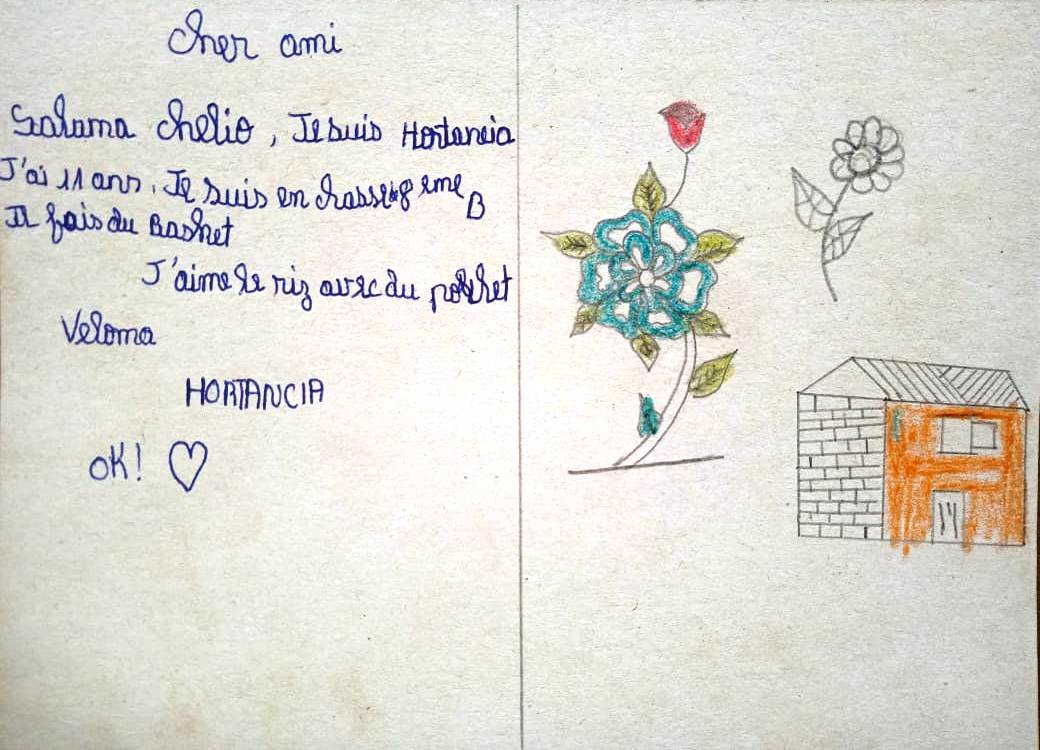 Cher ami
Salama chelio, Je suis Hortancia
J'ai 11 ans, Je suis en classe 8 eme B
Je fais du Basket
J'aime le riz avec du poulet
Veloma
HORTANCIA
OK! ♡